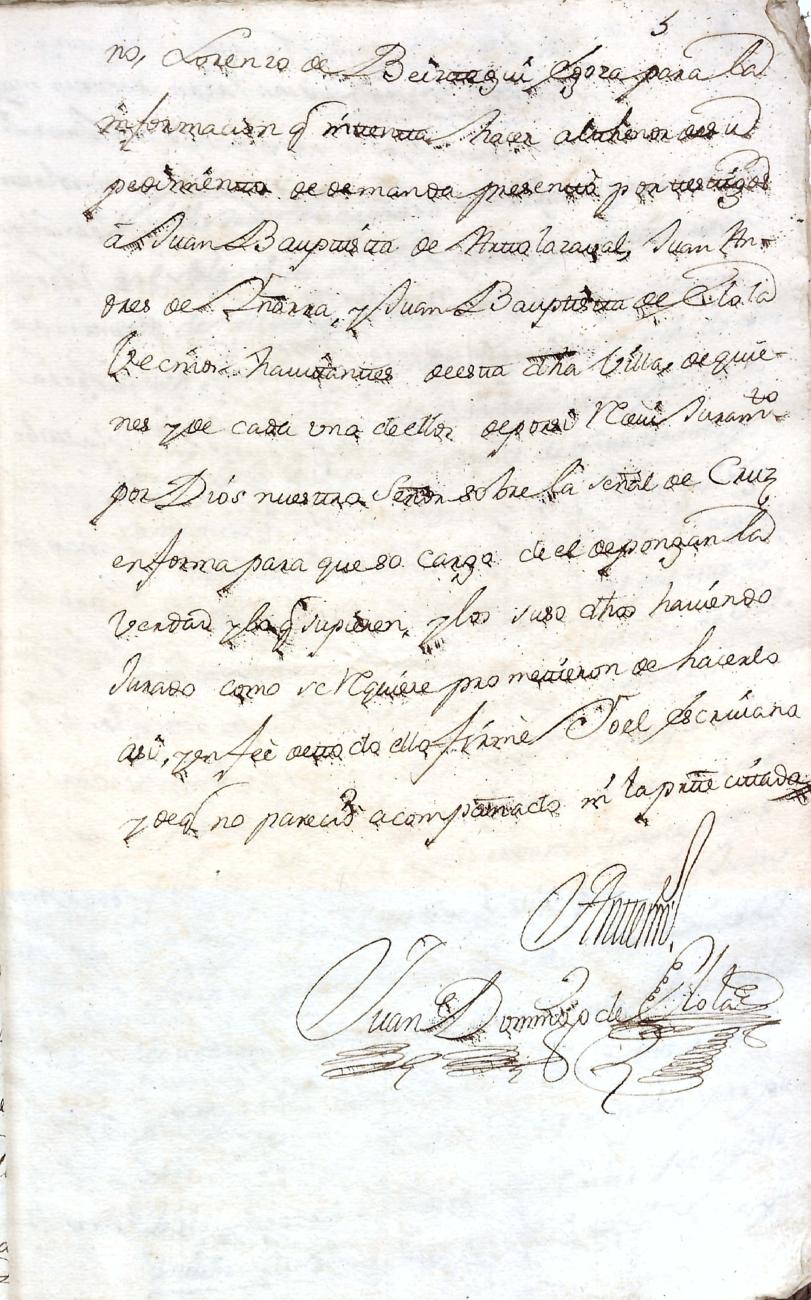 5
no, Lorenzo de Beiztegui Egoza para la
informacion q̃ intenta hacer al thenor de su
pedimento de demanda presentò por testigos
â Juan Bauptista de Artolazaval, Juan An-
dres de Ynarra, y Juan Bauptista de Elola
Vecinos havitantes de esta dha Villa, de quie-
nes y de cada uno de ellos de por sì Reciuì Juramto
por Diòs nuestro Señor sobre la señal de Cruz
en forma para que so cargo de el depongan la
verdad y lo q̃ supieren, y los suso dhos haviendo
Jurado como se Requiere prometieron de hacerlo
asi, y en feè de todo ello firmè Yo el Escriuano
y de q̃ no pareciò acompañado ni la parte citada
Antemi,
Juan Domingo de Elola